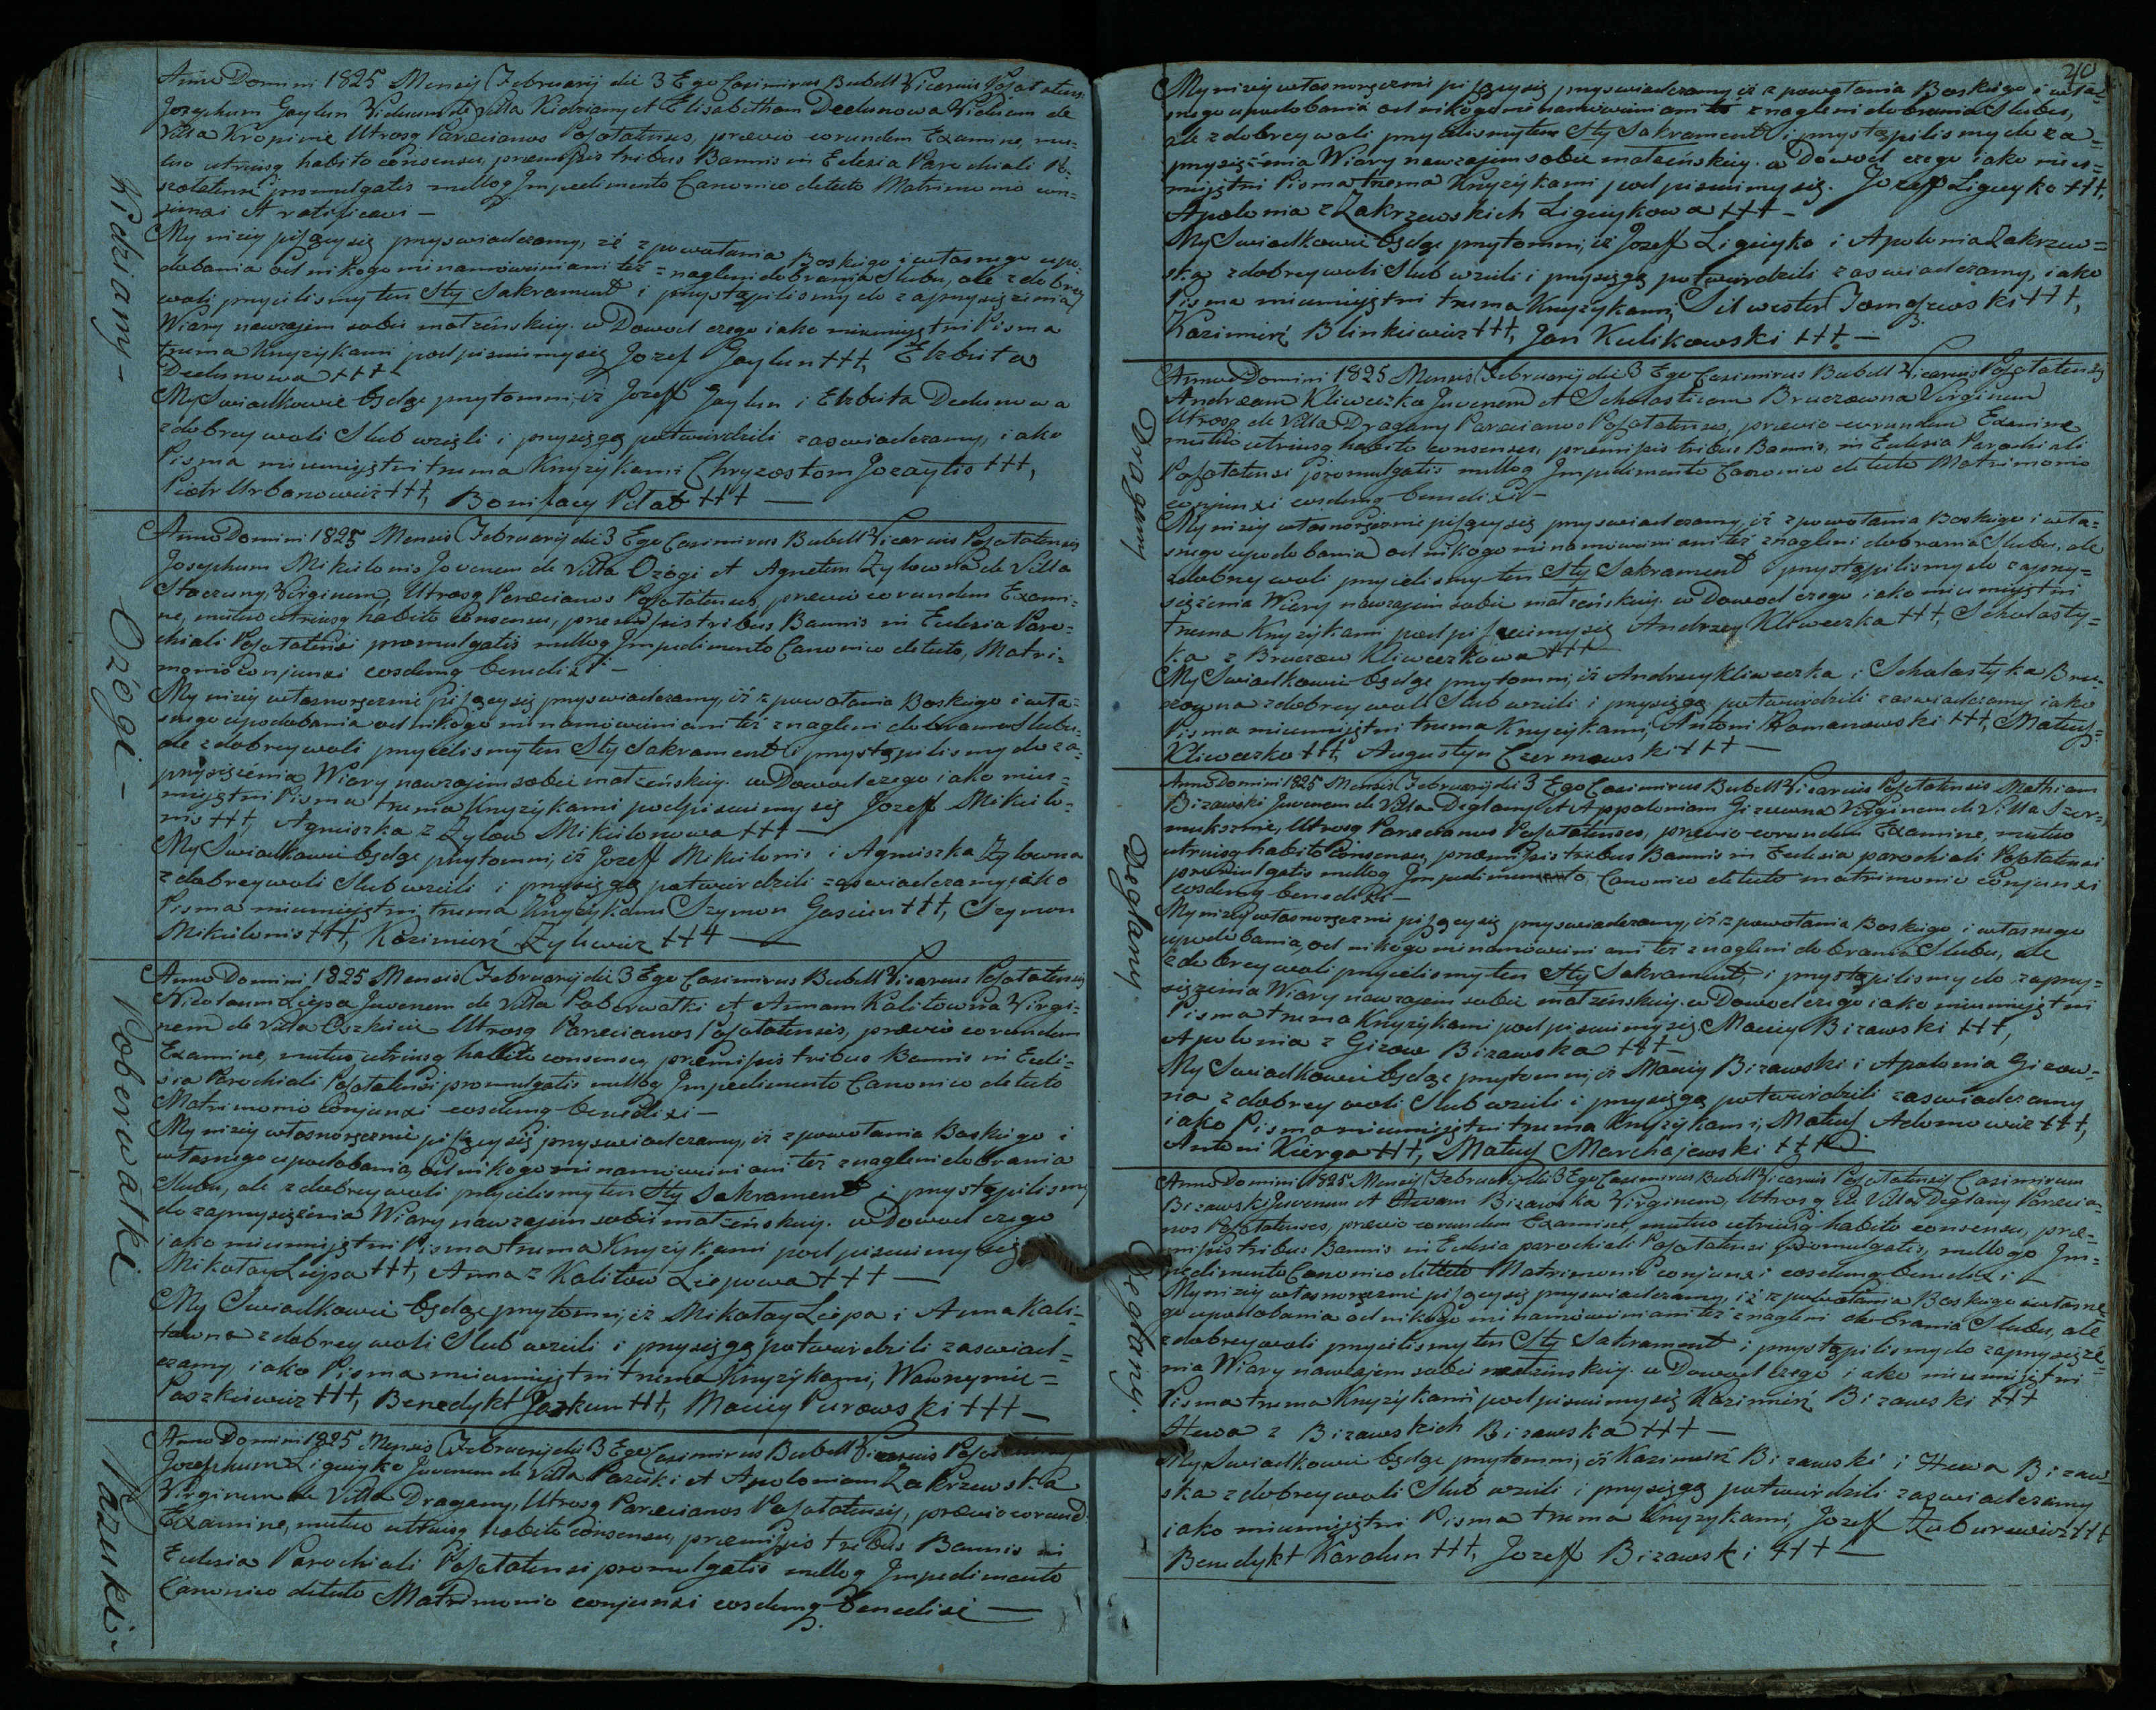 Kidziany –
Anno Domini 1825 Mensij Februarij die 3 Ego Casimirus Bubell Vicarius
Josephum Gaylun Viduum de Villa Kidziany et Elisabetham Dedunowa Viduam de
Villa Kropinie Utrosq Paraecianos Posotatenses, praevio eorundem Examine, mu=
tuo utriusq habito consensu, praemissis tribus Bannis in Eclesia Parochiali
promulgatis nulloq Impedimento Canonico detecto Matrimonio con=
junxi et ratificavi –
My niżey piszący się przyswiadczamy, iż z powołania Boskiego i własnego upo=
dobania od nikogo nienamowieni ani też znagleni do brania Slubu, ale z dobrey
woli przyielismy ten Sty Sakrament i przystąpilismy do zaprzysiężenia
Wiary nawzajem sobie małżeńskiey. w Dowod czego iako nieumiejętni Pisma
trzema Krzyżykami podpisuiemy się Jozef Gaylun +++, Elżbieta
Dedunowa +++
My Swiadkowie będąc przytomni, iż Jozeff Gaylun i Elzbieta Dedunowa
z dobrey woli Slub wzięli i przysięgą potwierdzili zaswiadczamy, iako
Pisma nieumiejętni trzema Krzyżykami Chryzostom Jozaytis +++,
Piotr Urbanowicz +++, Bonifacy Pitat +++ —
Ożogi –
Anno Domini 1825 Mensis Februarij die 3 Ego Casimirus Bubell Vicarius Posotatensis
Josephum Mikulonis Juvenem de Villa Ozogi et Agnetem Zylowna de Villa
Staczuny Virginem, Utrosq Paraecianos Posotatenses, praevio eorundem Exami=
ne, mutuo utriusq habito consensu, praemissis tribus Bannis in Eclesia Paro=
chiali Posotatensi promulgatis nulloq Impedimento Canonico detecto, Matri=
monio conjunxi eosdemq benedixi –
My niżey własnoręcznie piszący się przyswiadczamy, iż z powołania Boskiego i wła=
snego upodobania od nikogo nienamowieni ani też znagleni do brania Slubu,
ale z dobrey woli przyielismy ten Sty Sakrament i przystąpilismy do za=
przysiężenia Wiary nawzajem sobie małżeńskiey. w Dowod czego iako nieu=
miejętni Pisma trzema Krzyżykami podpisuiemy się Jozeff Mikulo=
nis +++, Agnieszka z Zylow Mikulonowa +++ —
My Swiadkowie będąc przytomni, iż Jozeff Mikulonis i Agnieszka Zylowna
z dobrey woli Slub wzieli i przysięgą potwierdzili zaswiadczamy iako
Pisma nieumiejętni trzema Krzyżykami Szymon Gasiun +++, Szymon
Mikulonis +++, Kazimierz Zylewicz +++ —
Poberwałki
Anno Domini 1825 Mensis Februarij die 3 Ego Casimirus Bubell Vicarius Posotatensis
Nicolaum Liepa Juvenem de Villa Poberwałki et Annam Kalitowna Virgi=
nem de Villa Utrosq Paraecianos Posotatensis, praevio eorundem
Examine, mutuo utriusq habito consensu, praemissis tribus Bannis in Ecle=
sia Parochiali Posotatensi promulgatis nulloq Impedimento Canonico detecto
Matrimonio conjunxi eosdemq benedixi –
My niżey własnoręcznie piszący się przyswiadczamy, iż z powołania Boskiego i
własnego upodobania, od nikogo nienamowieni ani też znagleni do brania
Slubu, ale z dobrey woli przyielismy ten Sty Sakrament i przystąpilismy
do zaprzysiężenia Wiary nawzajem sobie małżeńskiey. w Dowod czego
iako nieumiejętni Pisma trzema Krzyżykami podpisuiemy się
Mikołay Liepa +++, Anna z Kalitow Liepowa +++ —
My Swiadkowie będąc przytomni, iż Mikołay Liepa i Anna Kali=
towna z dobrey woli Slub wzieli i przysięgą potwierdzili zaswiad=
czamy, iako Pisma nieumiejętni trzema Krzyżykami, Wawrzynic=
Paszkiewicz +++, Benedykt Joskun +++, Maciey Purowski +++ —
Pażuki –
Anno Domini 1825 Mensis Februarij die 3 Ego Casimirus Bubell Vicarius
Josephum Ligieyko Juvenem de Villa Pazuki et Apoloniam Zakrzewska
Virginem de Villa Dragany, Utrosq Paraecianos Posotatensis, praevio eorund:
Examine, mutuo utriusq habito consensu, praemissis tribus Bannis in
Eclesia Parochiali Posotatensi promulgatis nulloq Impedimento
Canonico detecto Matrimonio conjunxi eosdemq benedixi —
My niżey własnoręcznie piszący się przyswiadczamy iż z powołania Boskiego i wła=
snego upodobania od nikogo nienamowieni ani też znagleni do brania Slubu,
ale z dobrey woli przyielismy ten Sty Sakrament i przystąpilismy do za=
przysiężenia Wiary nawzajem sobie małżeńskiey. w Dowod czego iako nieu=
miejętni Pisma trzema Krzyżykami podpisuiemy się. Jozeff Ligieyko +++,
Apolonia z Zakrzewskich Ligieykowa +++ –
My Swiadkowie będąc przytomni, iż Jozeff Ligieyko i Apolonia Zakrzew=
ska z dobrey woli Slub wzieli i przysięgą potwierdzili zaswiadczamy, iako
Pisma nieumiejętni trzema Krzyżykami, Silwester Tomaszewski +++,
Kazimierz Blinkiewicz +++, Jan Kulikowski +++. —
Dragany
Anno Domini 1825 Mensis Februarij die 3 Ego Casimirus Bubell Vicarius Posotatensis
Andream Kliweczka Juvenem et Scholasticam Bruczowna Virginem
Utrosq de Villa Dragany Paraecianos Posotatenses, praevio eorundem Examine
mutuo utriusq habito consensu, praemissis tribus Bannis, in Eclesia Parochiali
Posotatensi promulgatis nulloq Impedimento Canonico detecto Matrimonio
conjunxi eosdemq benedixi –
My niżey własnoręcznie piszący się przyswiadczamy, iż z powołania Boskiego i wła=
snego upodobania od nikogo nienamowieni ani też znagleni do brania Slubu, ale
z dobrey woli przyielismy ten Sty Sakrament i przystąpilismy do zaprzy=
siężenia Wiary nawzajem sobie małżeńskiey. w Dowod czego iako nieumiejętni
trzema Krzyżykami podpisuiemy się Andrzey Kliweczka +++, Scholasty=
ka z Bruczow Kliweczkowa +++
My Swiadkowie będąc przytomni, iż Andrzey Kliweczka i Scholastyka Bru=
czowna z dobrey woli Slub wzieli i przysięgą potwierdzili zaswiadczamy iako
Pisma nieumiejętni trzema Krzyżykami, Antoni Romanowski +++, Mateusz
Kliweczko +++, Augustyn Czerniewski +++ —
Deglany
Anno Domini 1825 Mensis Februarij die 3 Ego Casimirus Bubell Vicarius Posotatensis Mathiam
Birawski Juvenem de Villa Deglany et Appoloniam Girowna Virginem de Villa
Utrosq Paraecianos Posotatenses, praevio eorundem Examine, mutuo
utriusq habito Consensu, praemissis tribus Bannis in Eclesia parochiali Posotatensi
promulgatis nulloq Impedimento Canonico detecto matrimonio conjunxi
eosdemq benedixi –
My niżey własnoręcznie piszący się przyswiadczamy, iż z powołania Boskiego i własnego
upodobania, od nikogo nienamowieni ani też znagleni do brania Slubu, ale
z dobrey woli przyielismy ten Sty Sakrament, i przystąpilismy do zaprzy=
siężenia Wiary nawzajem sobie małżeńskiey. w Dowod czego iako nieumiejętni
Pisma trzema Krzyżykami podpisuiemy się Maciey Birawski +++,
Apolonia z Girow Birawska +++ –
My Swiadkowie będąc przytomni, iż Maciey Birawski i Apolonia Girow=
na z dobrey woli Slub wzieli i przysięgą potwierdzili zaswiadczamy
iako Pisma nieumiejętni trzema Krzyżykami, Mateusz Adomowicz +++,
Antoni Kierga +++, Mateusz Marchajewski +++ –
Deglany.
Anno Domini 1825 Mensij Februarij die 3 Ego Casimirus Bubell Vicarius Posotatensis Casimirum
Birawski Juvenem et Hewam Birawska Virginem, Utrosq de Villa Deglany Paraecia=
nos Posotatenses, praevio eorundem Examine, mutuo utriusq habito consensu, prae=
missis tribus Bannis in Eclesia parochiali Posotatensi Promulgatis, nulloqe Im=
pedimento Canonico detecto Matrimonio conjunxi eosdemq benedixi –
My niżey własnoręcznie piszący się przyswiadczamy, iż z powołania Boskiego własne=
go upodobania od nikogo nienamowieni ani też znagleni do brania Slubu, ale
z dobrey woli przyielismy ten Sty Sakrament i przystąpilismy do zaprzysięże=
nia Wiary nawzajem sobie małżeńskiey. w Dowod czego iako nieumiejętni
Pisma trzema Krzyżykami podpisuiemy się Kazimierz Birawski +++
Hewa z Birawskich Birawska +++ –
My Swiadkowie będąc przytomni, iż Kazimierz Birawski i Hewa Biraw=
ska z dobrey woli Slub wzieli i przysięgą potwierdzili zaswiadczamy
iako nieumiejętni Pisma trzema Krzyżykami, Jozeff Zuburewicz +++
Benedykt Karalun +++, Jozeff Birawski +++ —